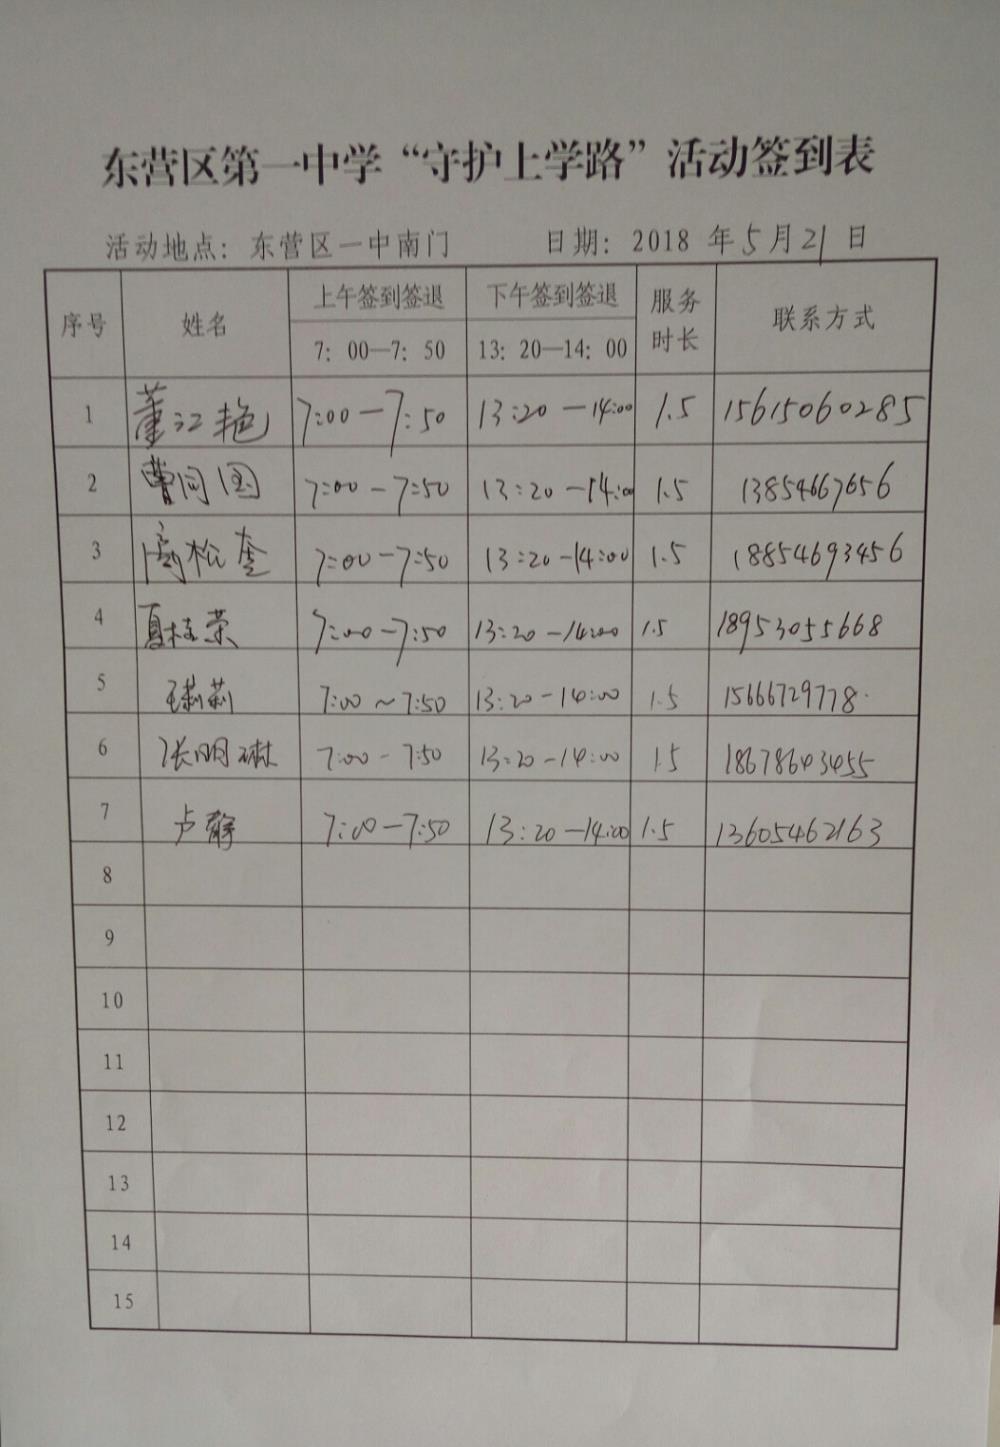 东营区第一中学“守护上学路”活动签到表
活动地点：东营区一中南门 日期：2018 年 5 月 21 日
序号 姓名 上午签到签退 下午签到签退 服务时长 联系方式
7：00—7：50 13：20—14：00
1 董江艳 7:00—7:50 13:20—14:00 1.5 15615060285
2 曹同国 7:00-7:50 13:20-14:00 1.5 13854667656
3 高松奎 7:00-7:50 13:20-14:00 1.5 18854693456
4 夏桂荣 7:00-7:50 13:20-14:00 1.5 18953055668
5 王莉莉 7:00~7:50 13:20-14:00 1.5 15666729778.
6 张明琳 7:00-7:50 13:20-14:00 1.5 18678643455
7 卢静 7:00-7:50 13:20-14:00 1.5 13605462163
8
9
10
11
12
13
14
15